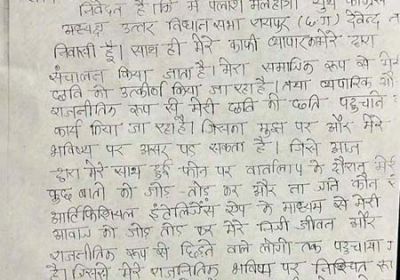 निवेदन है कि मैं पलाश मल्होत्रा यूथ कांग्रेस
अध्यक्ष उत्तर विधानसभा रायपुर (छ.ग) देवेन्द्र न
निवासी हूँ। साथ ही मेरे काफी व्यापार मेरे द्वारा
संचालन किया जाता है। मेरा समाजिक रूप से मेरी
छति को किया जा रहा है। तथा व्यापारिक और
राजनीतिक रूप से मेरी छति को छति पहुचाने
कार्य किया जा रहा है। जिसका मुझ पर और मेरे
भविष्य पर असर पड़ सकता है। जिसे आज
द्वारा मेरे साथ हुई फोन पर वार्तालाप के दौरान मेरी
कुछ बातो को जोड़-तोड़ कर और ना जाने कौन से
आर्टिफिशियल इंटेलिजेंस ऐप के माध्यम से मेरी
आवाज को जोड़ तोड़ कर मेरे निजी जीवन और
राजनीतिक रूप से वाले लोगो तक पहुचाया ज
है। जिससे मेरे राजनितिक भविष्य पर निश्चित रू